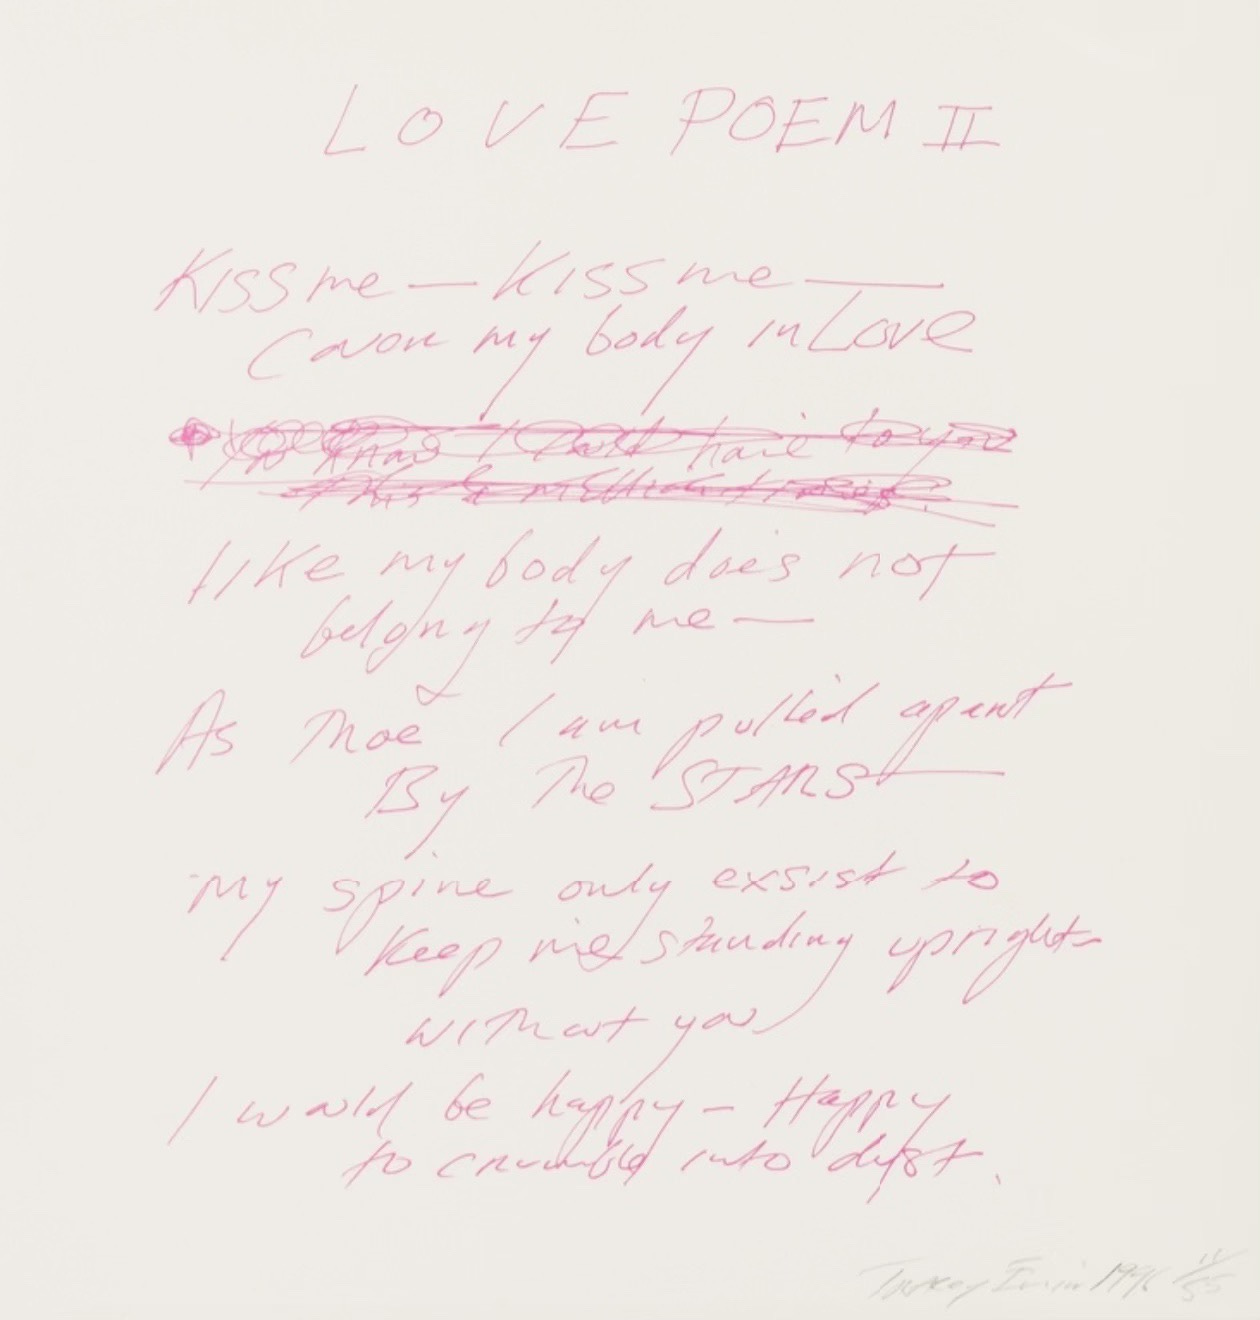 LOVE POEM II
Kiss me — Kiss me —
Cover my body in Love
like my body does not
belong to me —
As Thoe I am pulled apart
By The STARS —
My spine only exsist to
Keep me standing upright
without you
I would be happy – Happy
to crumble into dust.
Tracey Emin 1996